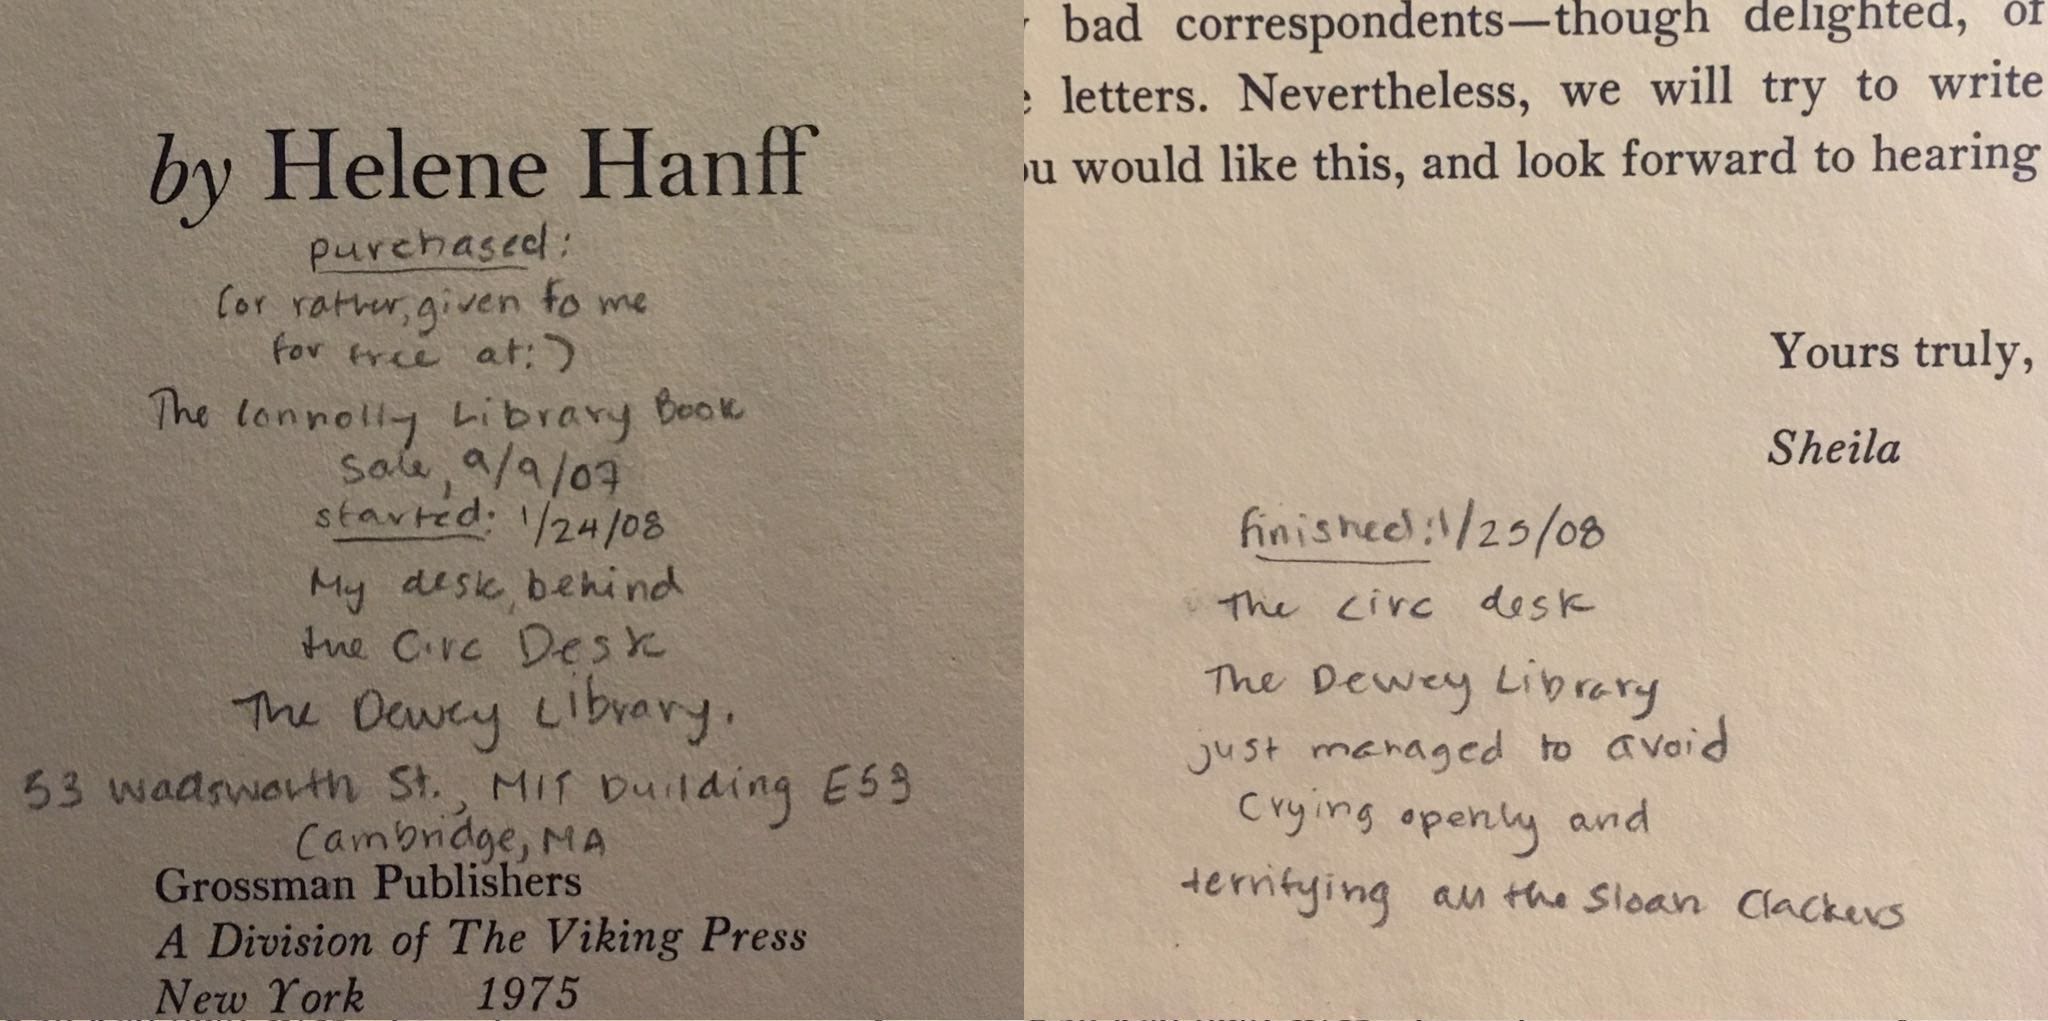 by Helene Hanff
purchased:
(or rather, given to me
for free at:)
The Connolly Library Book
Sale, 9/9/07
started: 1/24/08
My desk, behind
the Circ Desk
The Dewey Library.
53 Wadsworth St., MIT building E53
Cambridge, MA
Grossman Publishers
A Division of The Viking Press
New York 1975
bad correspondents—though delighted, of
letters. Nevertheless, we will try to write
ou would like this, and look forward to hearing
Yours truly,
Sheila
finished: 1/25/08
The circ desk
The Dewey Library
just managed to avoid
Crying openly and
terrifying all the Sloan Clackers